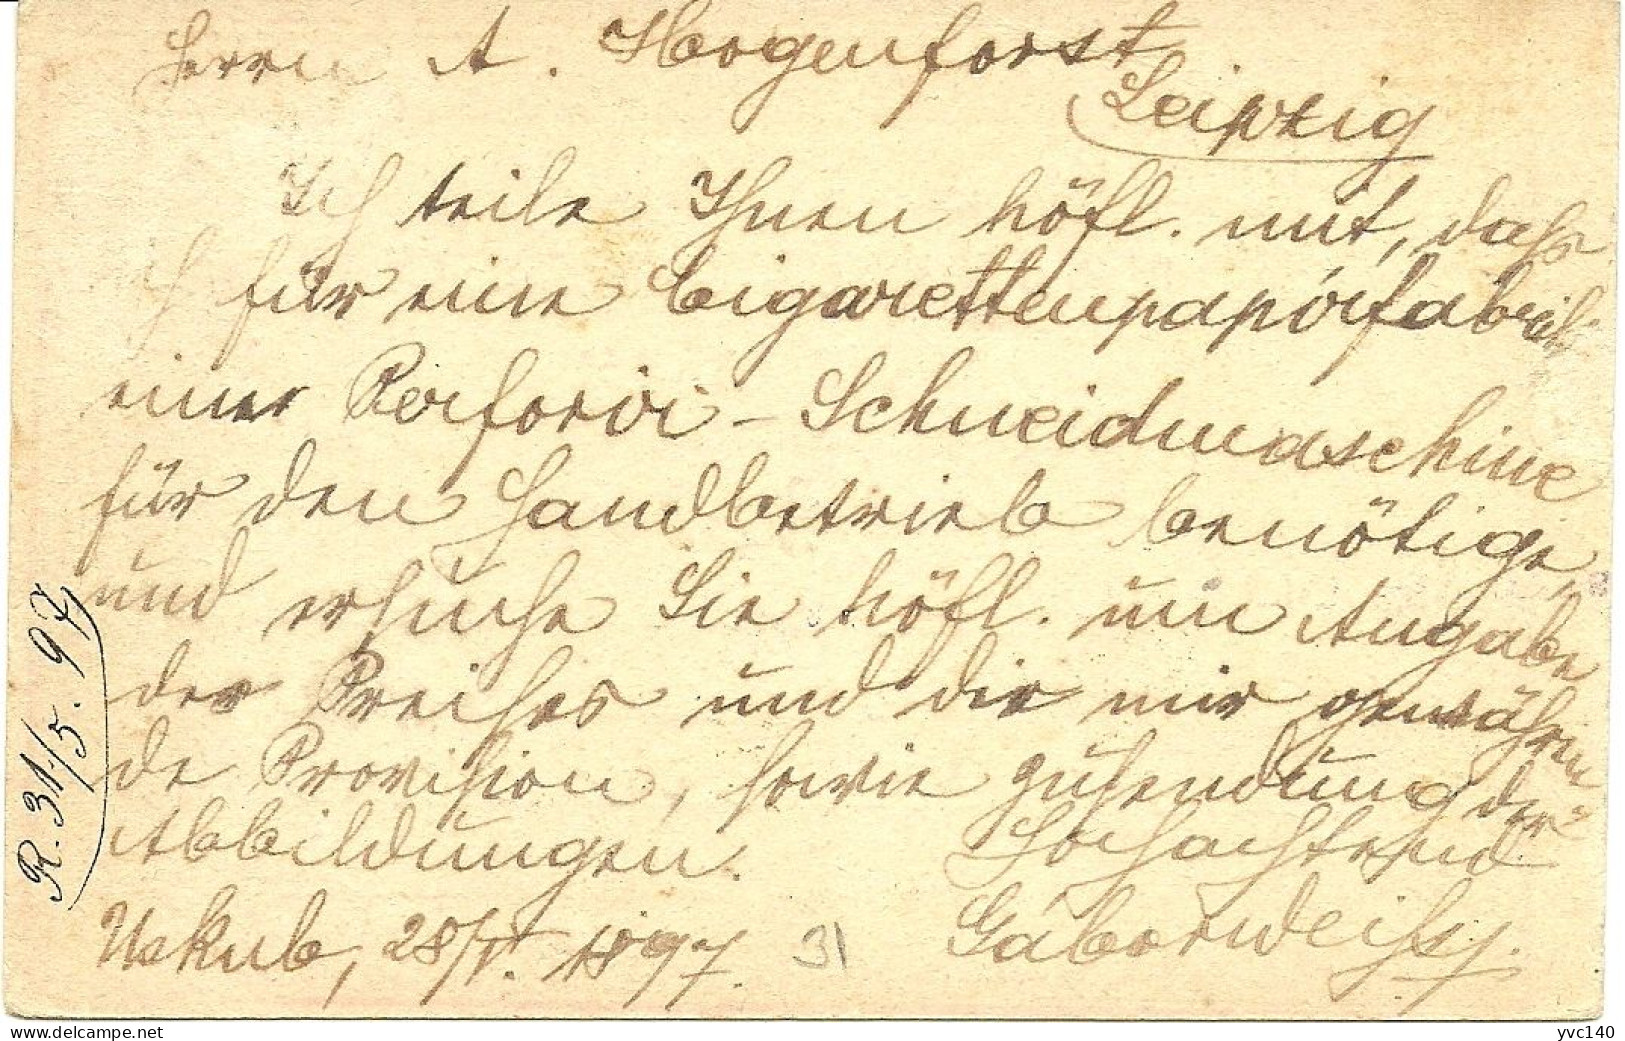 Herrn A. Hogenforst
Leipzig
Ich teile Ihnen höfl. mit, daß
ich für eine Cigarettenpapierfabrik
einer Perforir-Schneidmaschine
für den Handbetrieb benötige,
und ersuche Sie höfl. um Angabe
des Preises und die mir gewähren-
de Provision, sowie Zusendung der
Abbildungen. Hochachtend
Uskub, 28/V. 1897. Gábor Weiss.
R. 31/5. 97
31
delcampe.net
yvc140